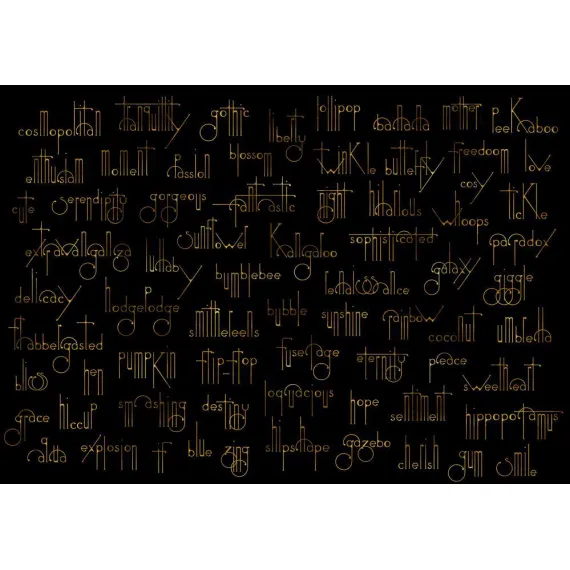 cosmopolitan tranquility gothic liberty lollipop banana mother peekaboo
enthusiasm moment passion blossom twinkle butterfly freedom love
cute serendipity gorgeous fantastic night hilarious cosy whoops tickle
extravaganza lullaby sunflower kangaroo sophisticated galaxy paradox
delicacy hodgepodge bumblebee renaissance giggle
flabbergasted smithereens bubble sunshine rainbow coconut umbrella
bliss hen pumpkin flip-flop fuselage eternity peace sweetheart
grace hiccup smashing destiny loquacious hope sentiment hippopotamus
aqua explosion if blue zing shipshape gazebo cherish gum smile